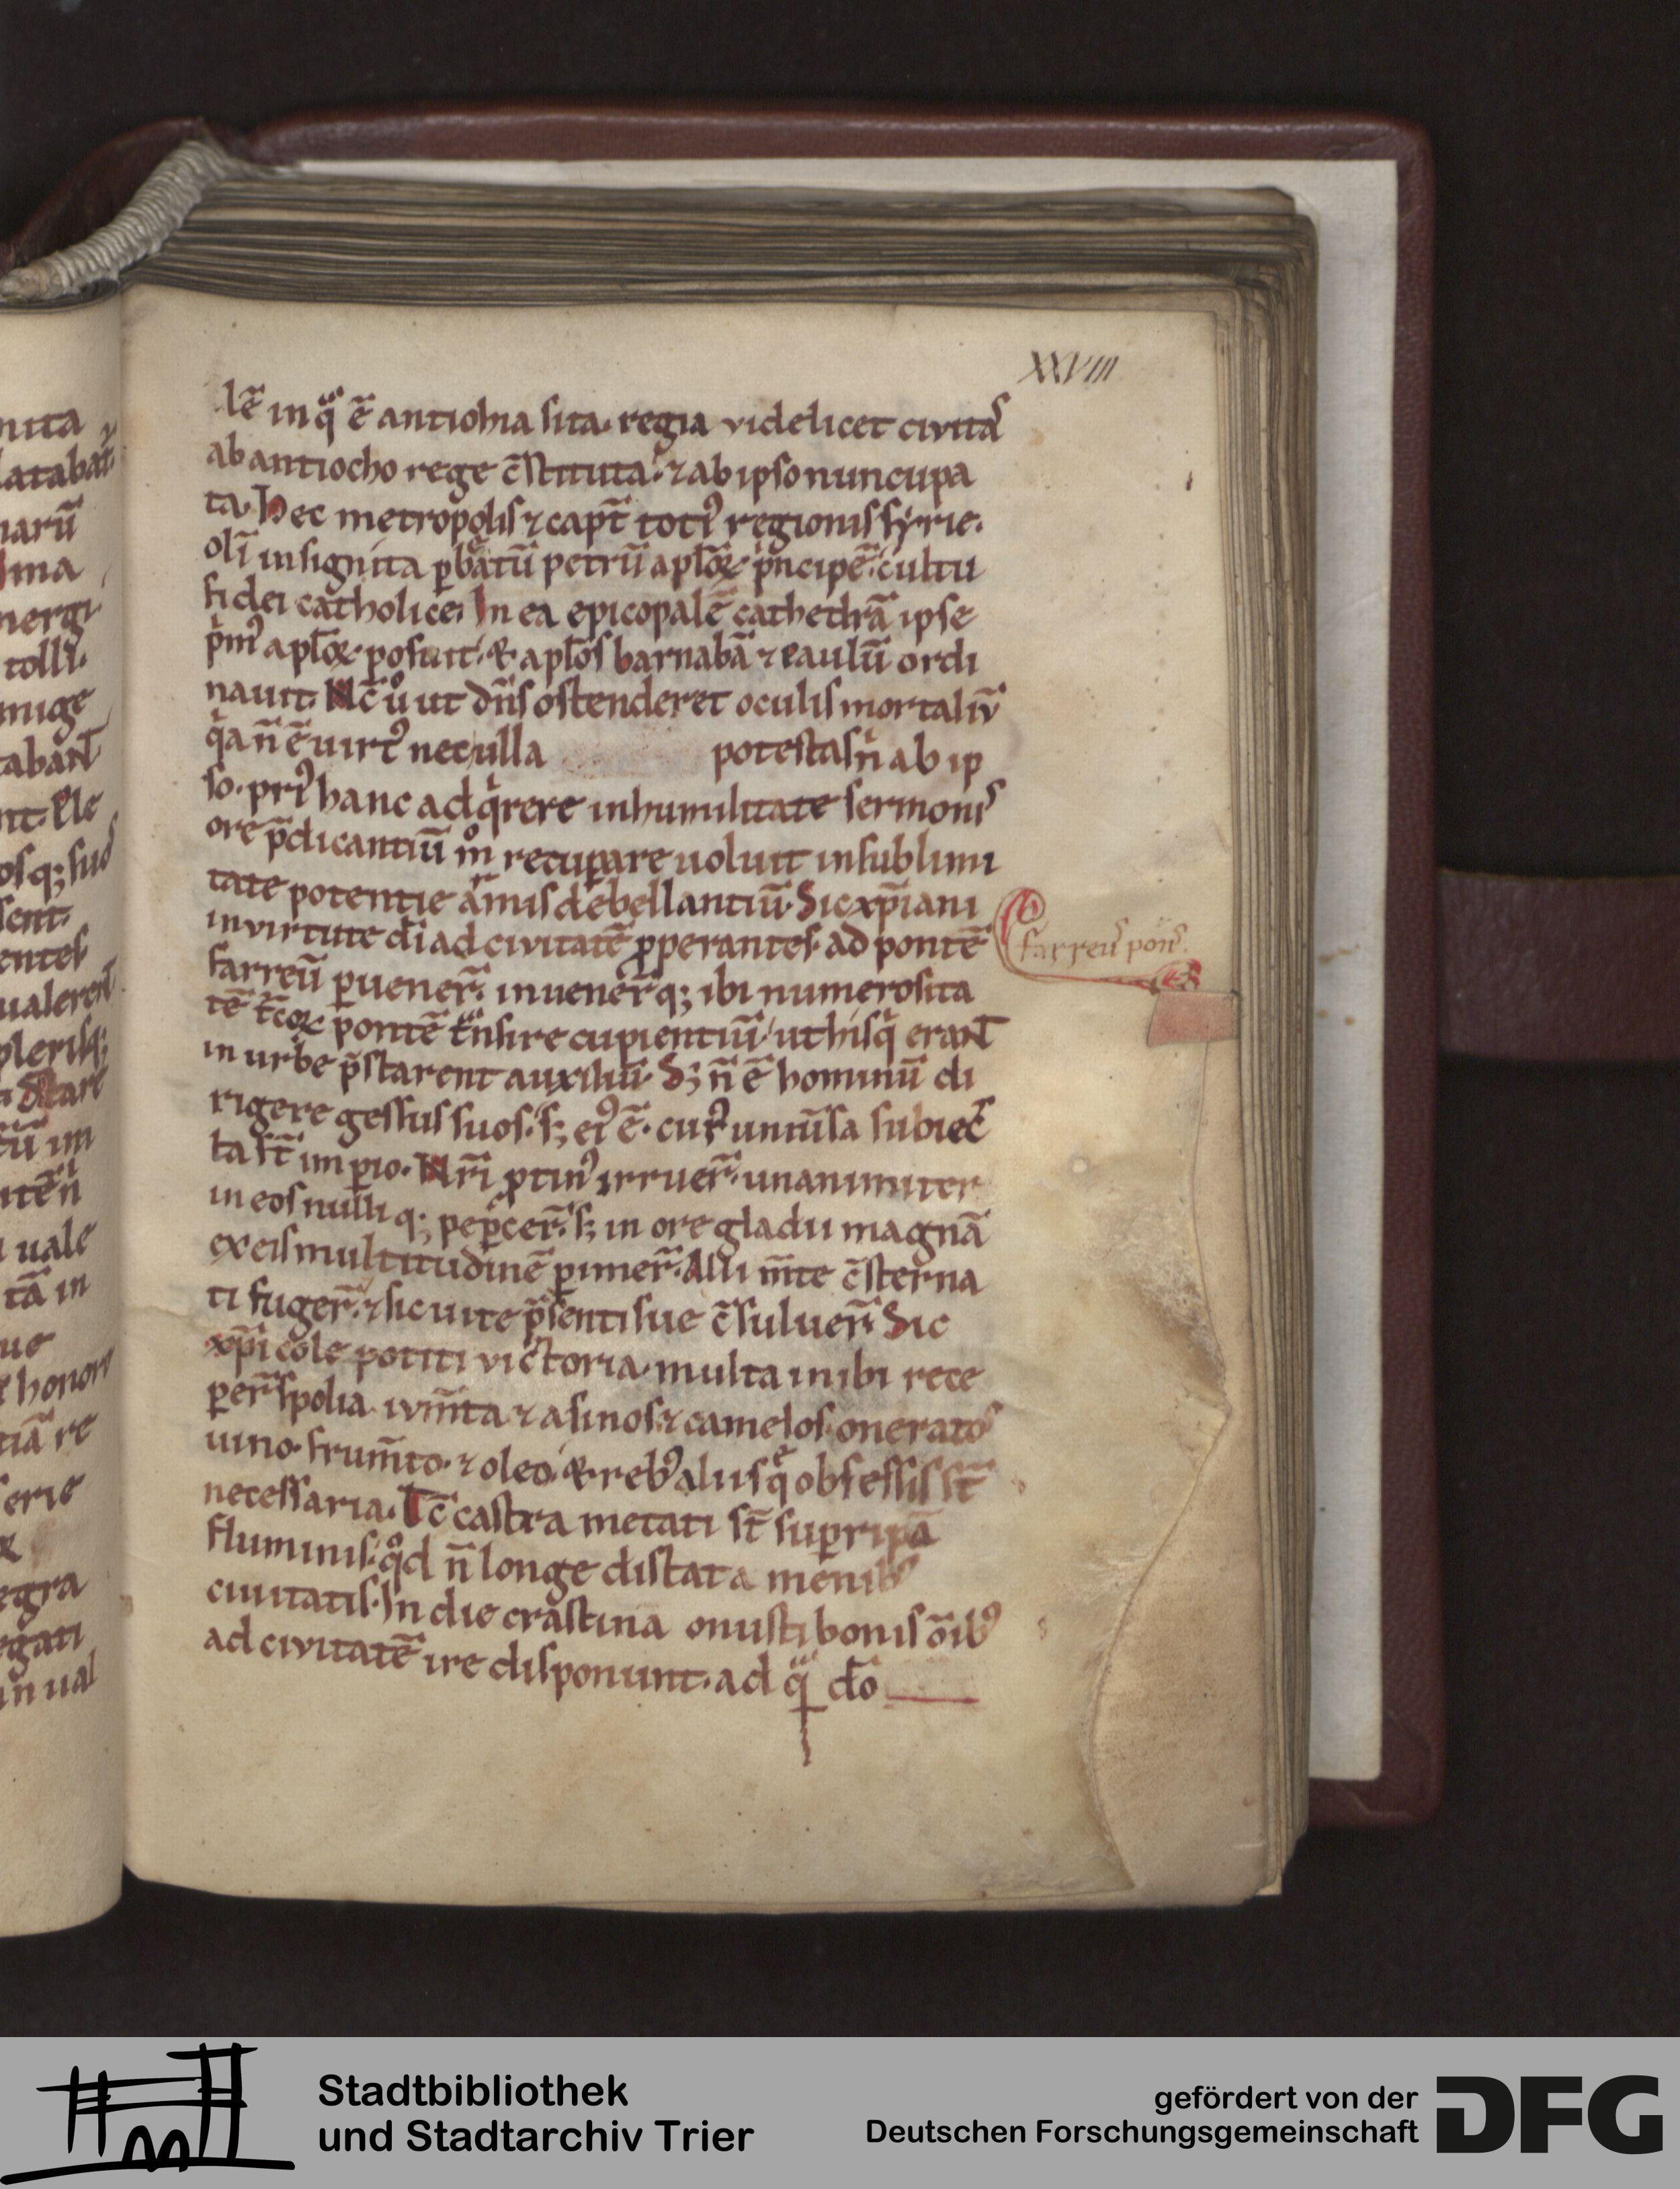 XXVIII
lē in qͣ ē antiohia sita. regia videlicet civitaˢ
ab antiocho rege c̄stituta. ⁊ ab ipso nuncupa
ta. Hec metropolis ⁊ capt̄ totꝰ regionis syrie.
olī insignita ꝑ bͣtū petrū aplōꝝ pͥncipē. cultu
fidei catholice. In ea epicopalē cathedrā ipse
pͥmꝰ aplōꝝ posuit. & aplōs barnabā ⁊ paulū ordi
nauit. Nc̄ uͦ ut dn̄s ostenderet oculis mortaliū
qͥa n̄ ē uirtꝰ nec ulla potestas nͥ ab ip
so. priꝰ hanc adqͥrere in humilitate sermonis
ore p̄dicantiū mͦ recuꝑare uoluit in sublimi
tate potentie armis debellantiū. Sic xp̄iani
in virtute dī ad civitatē ꝓperantes. ad pontē
farreū ꝑuener̄. inuener̄ qꝫ ibi numerosita
tē t̄coꝝ pontē tͣnsire cupientiū. ut his qͥ erant
in urbe p̄starent auxiliū. Sꝫ n̄ ē hominū di
rigere gessus suos. sꝫ eiꝰ ē. cuiꝰ uniūsa subiec
ta st̄ imꝑio. Nr̄i ꝓtinꝰ irruer̄ unanimiter
in eos nulli qꝫ peꝑcer̄. sꝫ in ore gladii magnā
ex eis multitudinē ꝑimer̄. Alii m̄te c̄sterna
ti fuger̄. ⁊ sic uite p̄senti sue c̄suluer̄. Sic
xp̄icole potiti victoria. multa inibi rece
ꝑer̄ spolia. ivm̄ta ⁊ asinos ⁊ camelos. oneratoˢ
uino. frum̄to. ⁊ oleo. & rebꝰ aliis qͤ obsessis st̄
necessaria. Tc̄ castra metati st̄ suꝑ ripā
fluminis. qͦd n̄ longe distat a menibꝰ
ciuitatis. In die crastina onusti bonis ōibꝰ
ad civitatē ire disponunt. ad qͣ do
farreuˢ ponˢ.
Stadtbibliothek
und Stadtarchiv Trier
gefördert von der
Deutschen Forschungsgemeinschaft
DFG